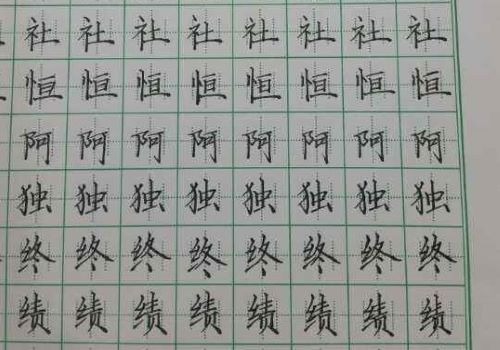 社社社社社社社社
恒恒恒恒恒恒恒恒
阿阿阿阿阿阿阿阿
独独独独独独独独
终终终终终终终终
绩绩绩绩绩绩绩绩